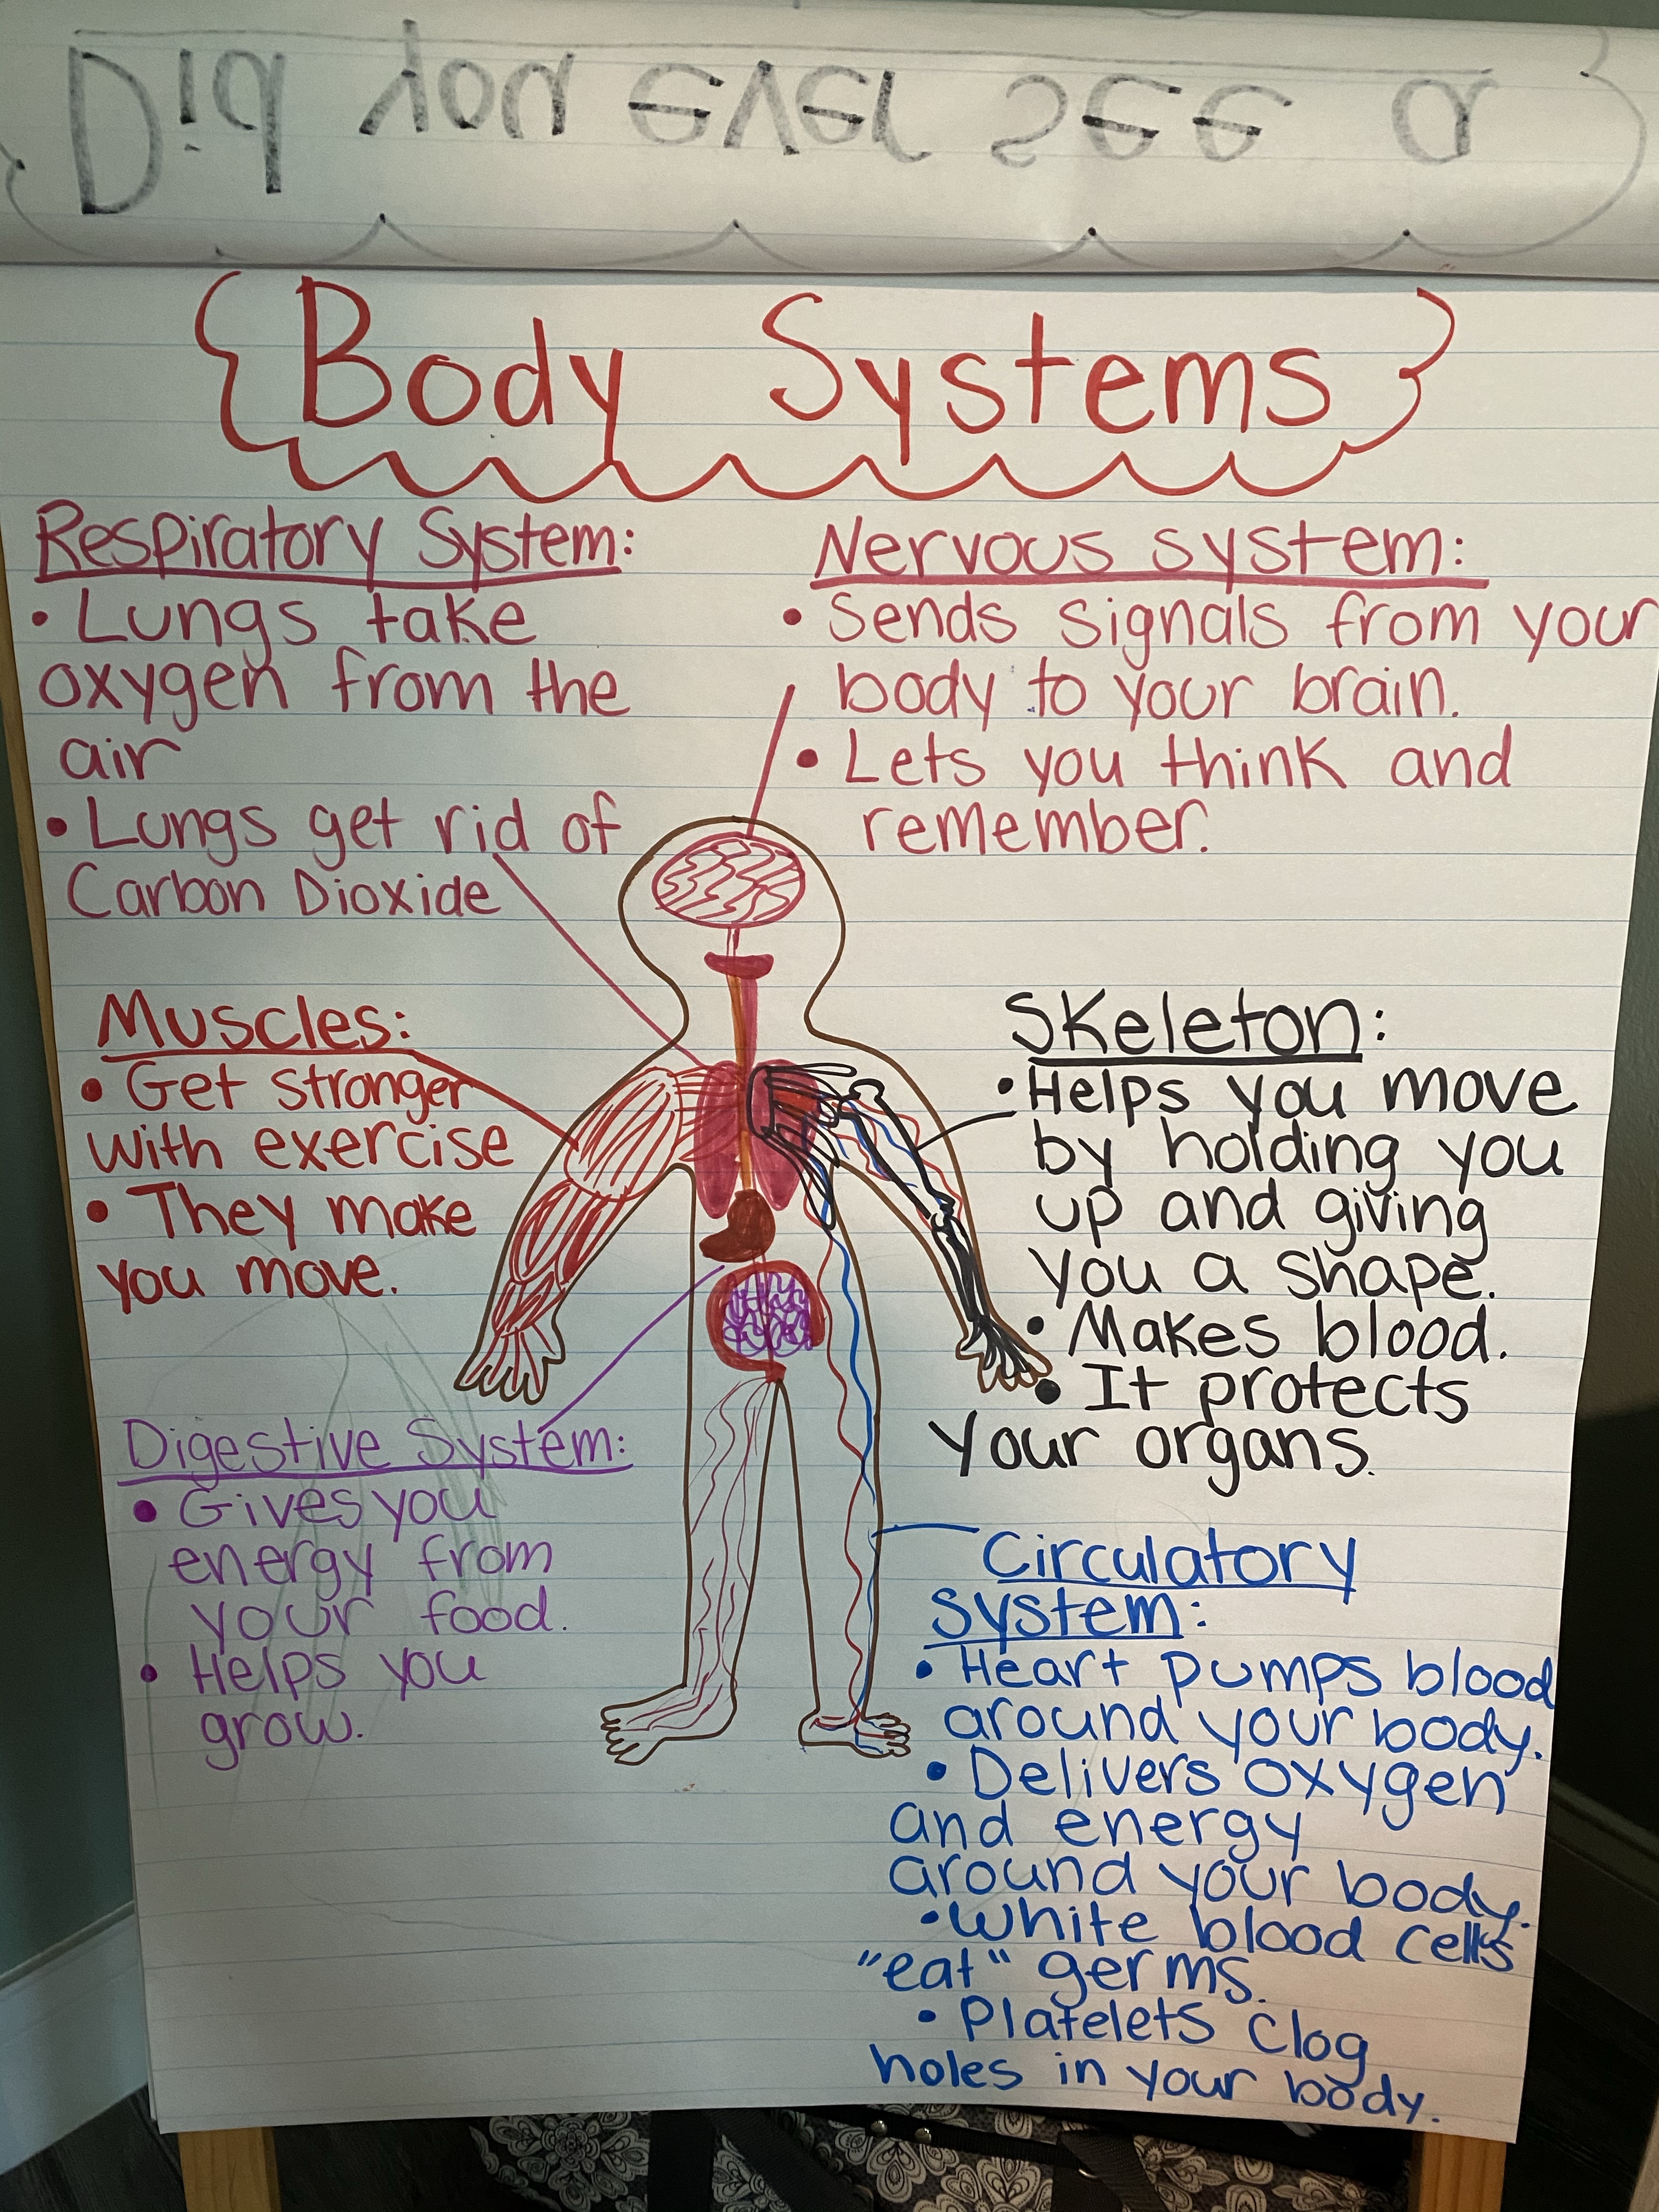 Did you ever see a
Body Systems
Respiratory System:
• Lungs take
oxygen from the
air
• Lungs get rid of
Carbon Dioxide
Nervous system:
• Sends signals from your
body to your brain.
• Lets you think and
remember.
Muscles:
• Get stronger
with exercise
• They make
you move.
Skeleton:
• Helps you move
by holding you
up and giving
you a shape.
• Makes blood.
• It protects
your organs.
Digestive System:
• Gives you
energy from
your food.
• Helps you
grow.
Circulatory
System:
• Heart pumps blood
around your body.
• Delivers oxygen
and energy
around your body.
• White blood cells
"eat" germs.
• Platelets clog
holes in your body.